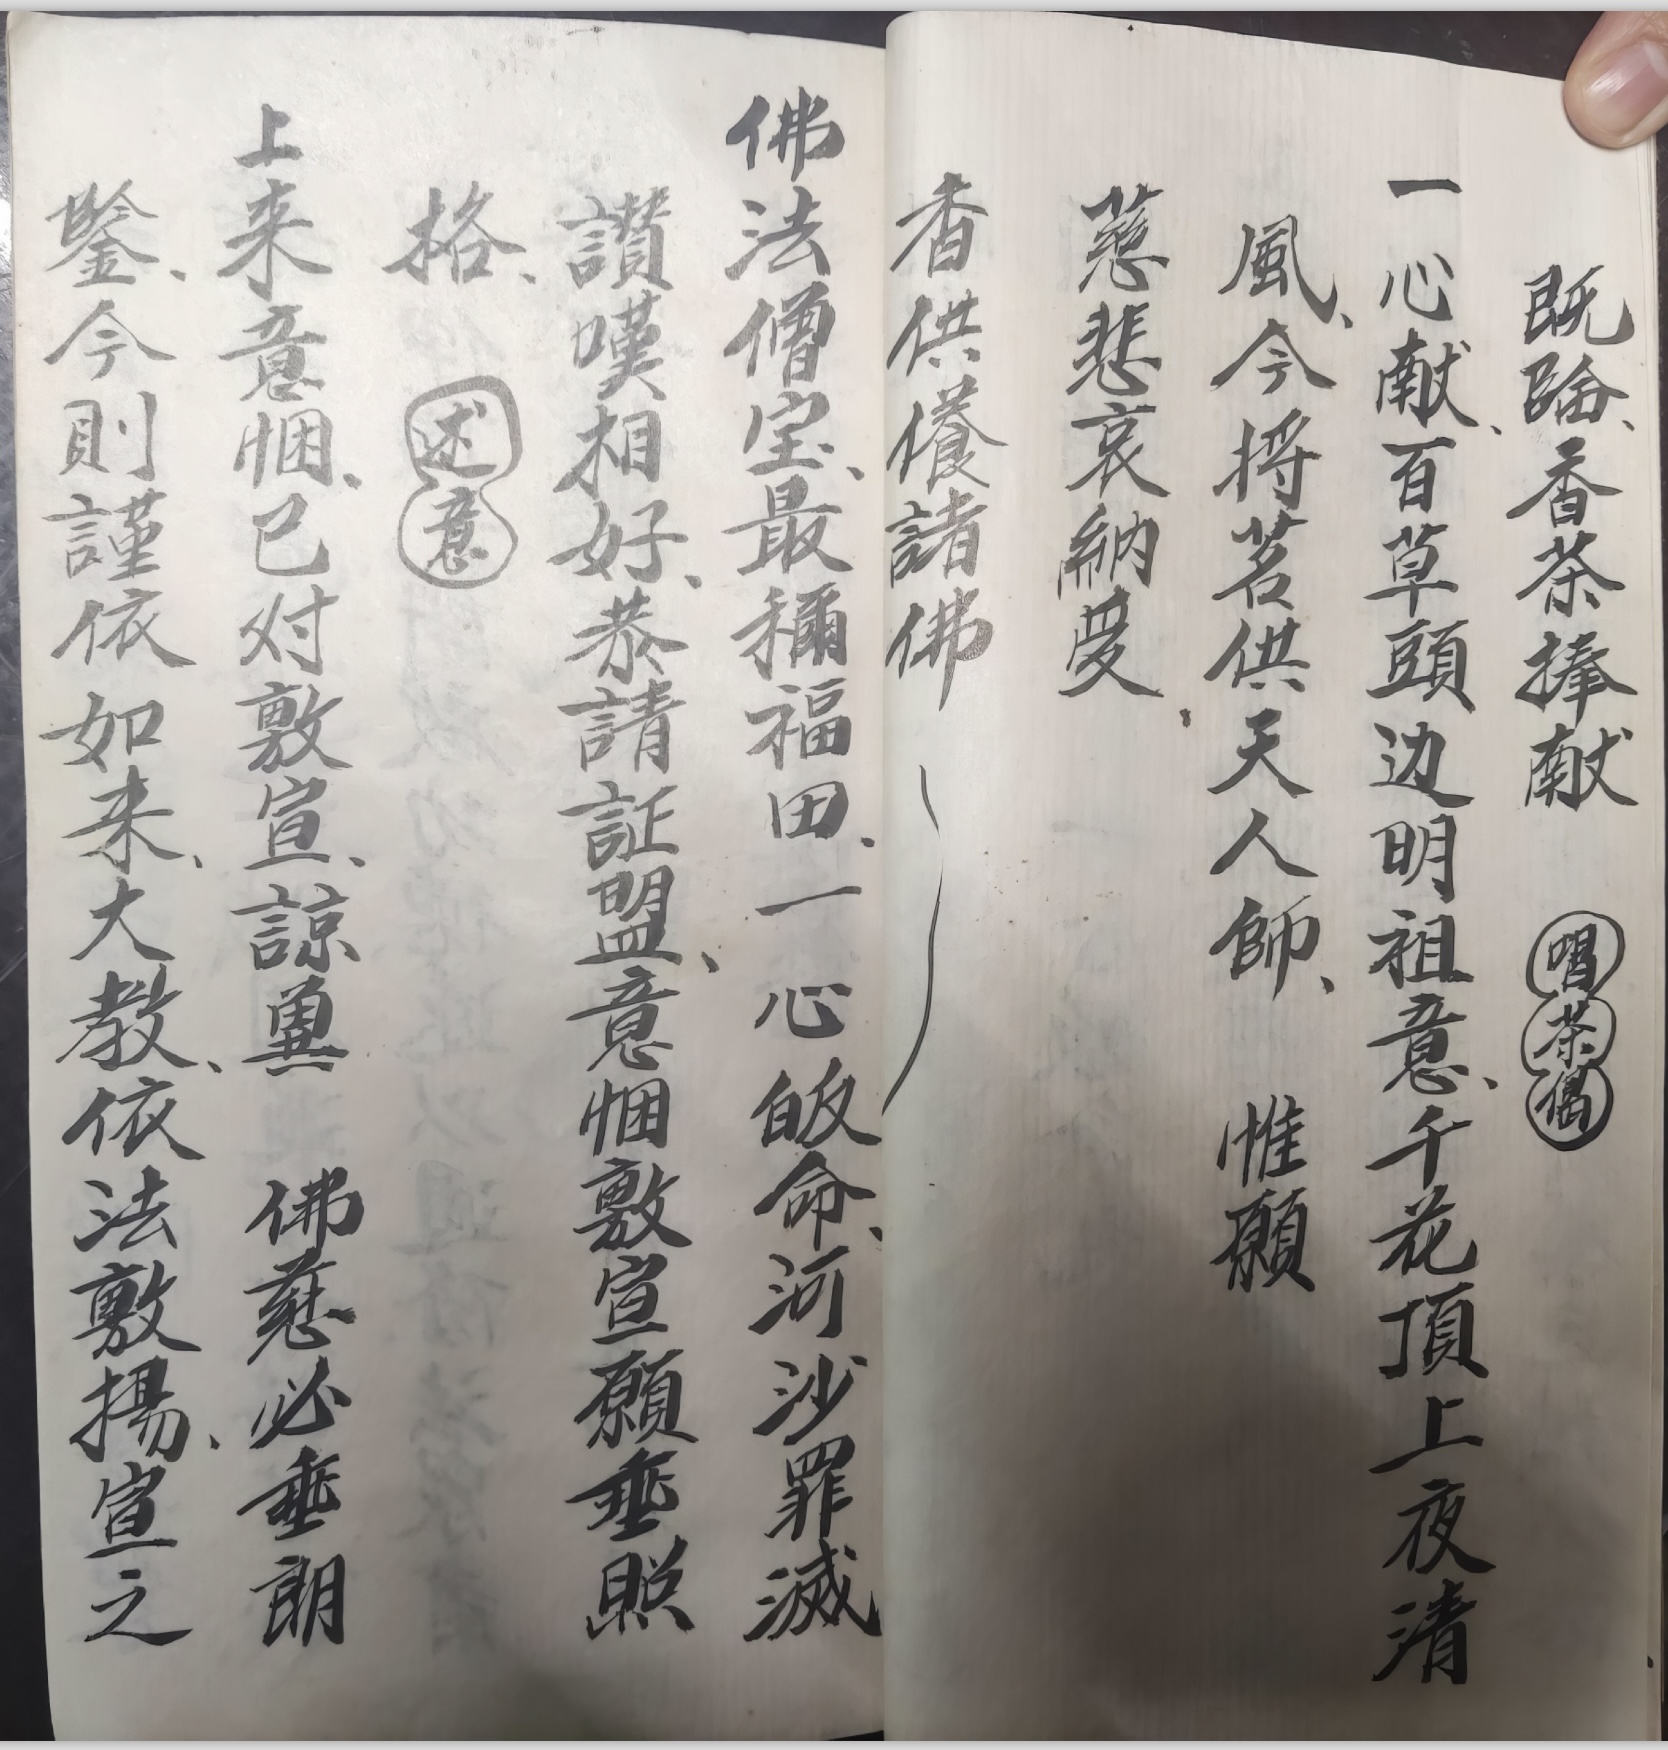 既𨹧、香茶捧献 唱茶偈
一心献、百草頭边明祖意、千花頂上夜清
風、今将茗供天人師、 惟願
慈悲哀納受、
香供養諸佛
佛法僧宝、最称福田、一心皈命、河沙罪滅
讃嘆相好、恭請証盟、意悃敷宣願垂照
格、 述意
上来意悃、已对敷宣、諒兾 佛慈必垂朗
鑒、今則謹依如来、大教、依法敷揚、宣之